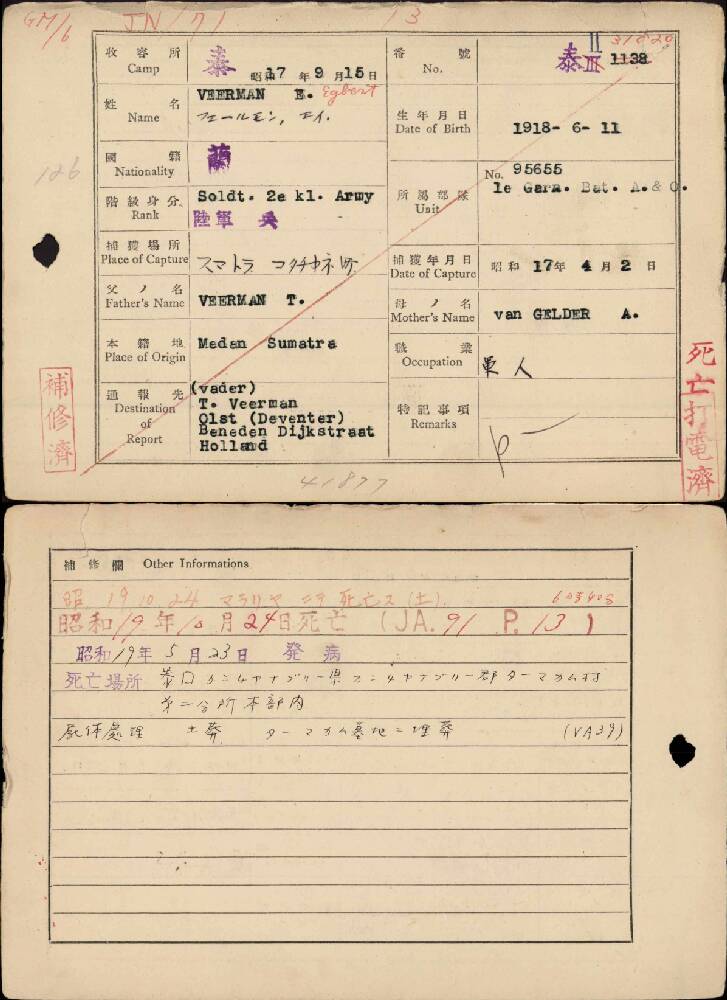 GM/6 JN 171 13
收容所 Camp 泰 昭和17年9月15日
番號 No. 泰 II III 1138 31620
姓名 Name VEERMAN E. Egbert
フェールモン, エイ.
生年月日 Date of Birth 1918- 6- 11
國籍 Nationality 蘭
126
階級身分 Rank Soldt. 2e kl. Army
陸軍 兵
所屬部隊 Unit No. 95655
1e Garn. Bat. A. & O.
捕獲場所 Place of Capture スマトラ コタチャネ町
捕獲年月日 Date of Capture 昭和 17年 4月 2日
父ノ名 Father's Name VEERMAN T.
母ノ名 Mother's Name van GELDER A.
本籍地 Place of Origin Medan Sumatra
職業 Occupation 軍人
通報先 Destination of Report (vader)
T. Veerman
Olst (Deventer)
Beneden Dijkstraat
Holland
特記事項 Remarks
補修濟
死亡打電濟
41877
補修欄 Other Informations
昭 19 10 24 マラリヤ ニテ 死亡ス(土).
昭和19年10月24日死亡 (JA. 91 P. 13)
昭和19年5月23日 發病
死亡場所
第二分所本部内
死体處理 土葬 ターマカム墓地ニ埋葬 (VA39)